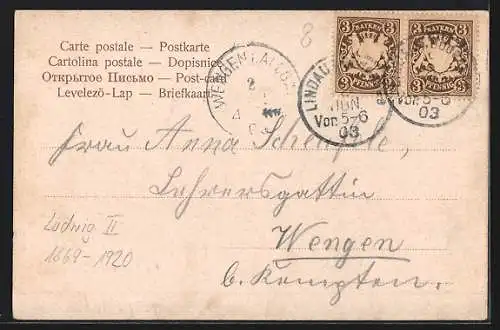 8
3 BAYERN 3
PFENNIG
3 BAYERN 3
PFENNIG
Carte postale — Postkarte
Cartolina postale — Dopisnice
Открытое Письмо — Post-card
Levelező-Lap — Briefkaart
WENGEN
LINDAU
JUN
Vor. 5-6
03
Vor. 5-6
03
Frau Anna
Lehrersgattin
Wengen
b. Kempten.
Ludwig II
1869-1920